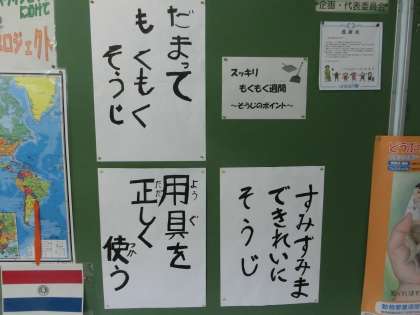 ロジェクト
だまって
もくもく
そうじ
スッキリ
もくもく週間
～そうじのポイント～
企画・代表委員会
用具を
正しく
使う
よう
ぐ
ただ
つか
すみずみま
できれいに
そうじ